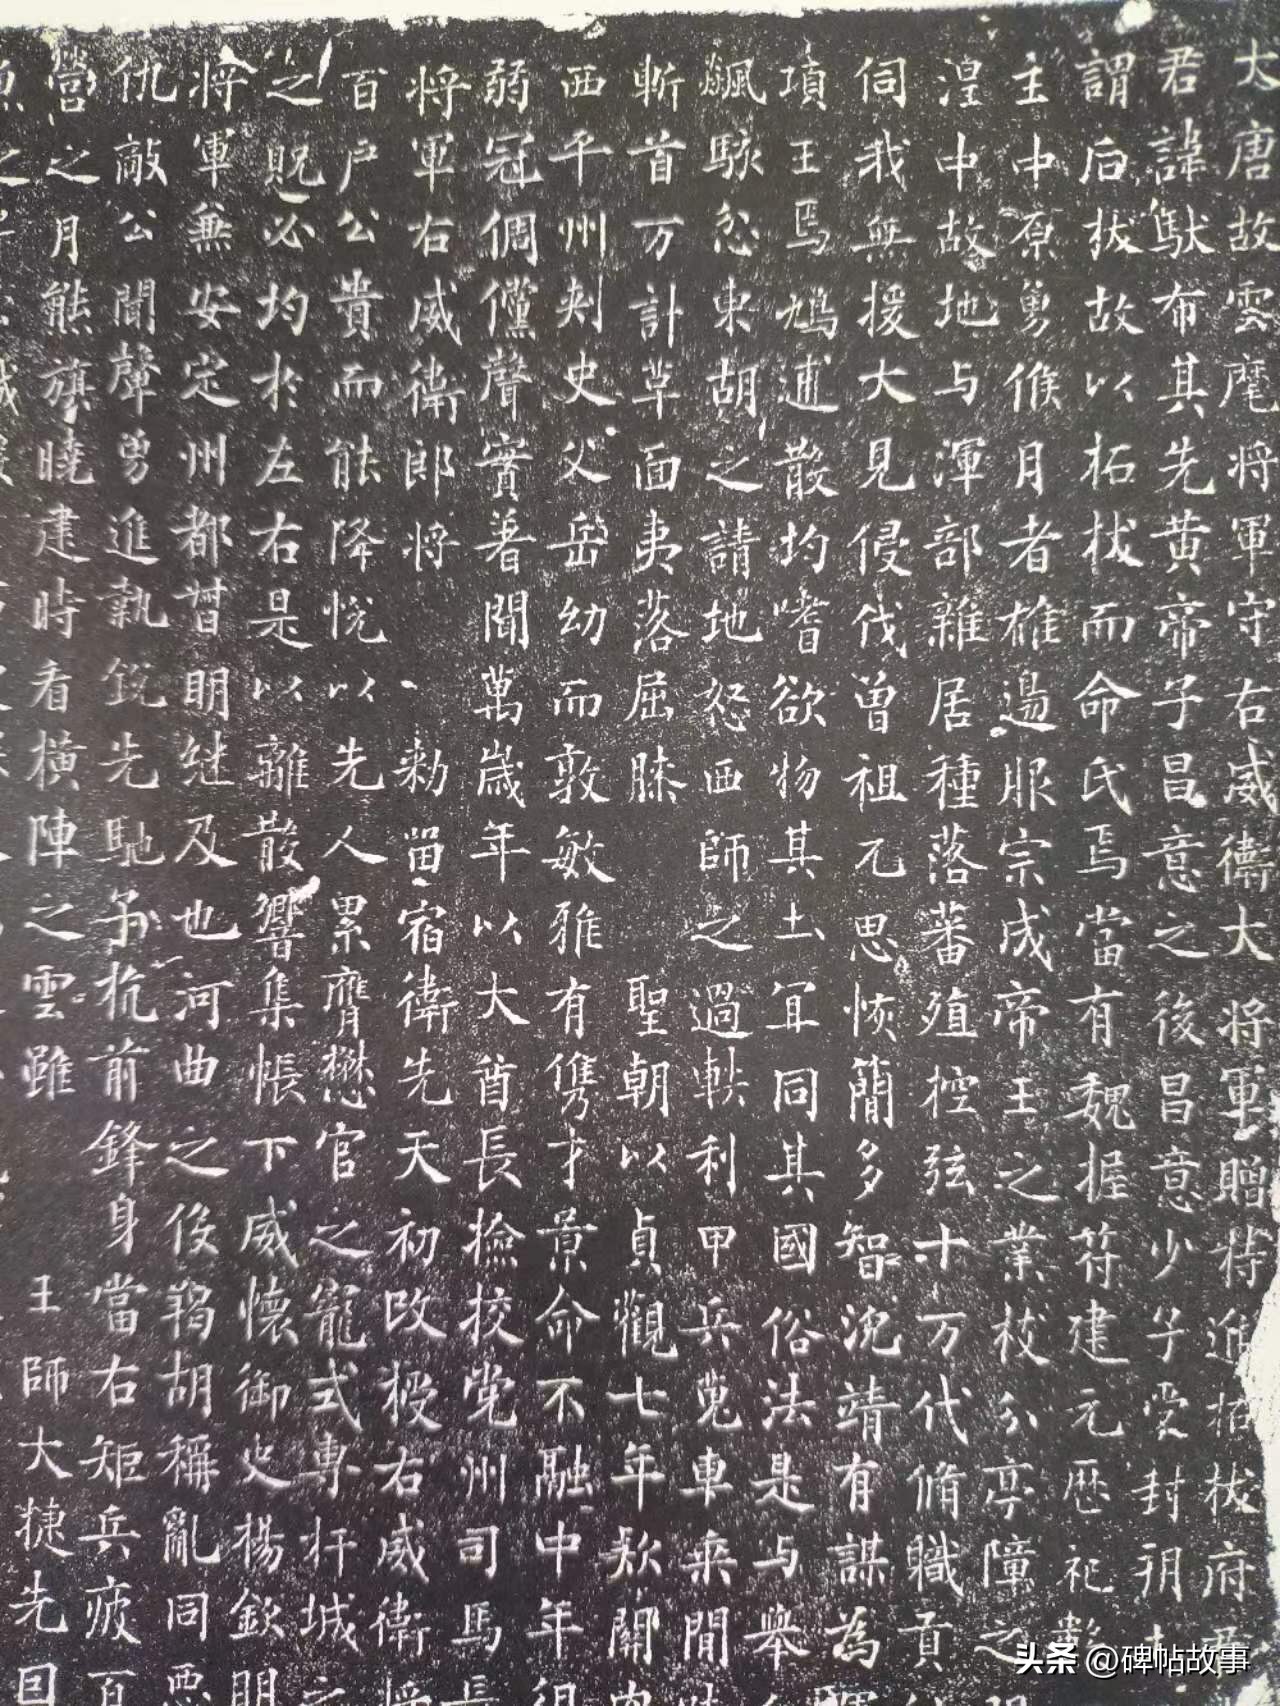 大唐故雲麾將軍守右威衛大將軍贈特進拓拔府
君諱馱布其先黃帝子昌意之後昌意少子受封朔
謂后拔故以拓拔而命氏焉當有魏握符建元歷祀數
主中原勇俟月者雄邊服宗成帝王之業枝分亭障之
湟中故地与渾部雜居種落蕃殖控弦十万代脩職貢
伺我無援大見侵伐曾祖兀思恢簡多智沈靖有謀為
項王焉鳩逋散均嗜欲物其土宜同其國俗法是与舉
飊駭忿東胡之請地怒西師之過軼利甲兵蒐車乘間
斬首万計草面夷落屈膝 聖朝以貞觀七年款關
西平州刾史父岳幼而敦敏雅有儁才景命不融中年
弱冠倜儻聲實著聞萬歲年以大酋長撿校党州司馬
將軍右威衛郎將 勑留宿衛先天初改授右威衛
百户公貴而能降悅以先人累膺懋官之寵式專扞城
之貺必均於左右是以離散響集帳下威懷御史楊欽明
將軍兼安定州都督明繼及也河曲之伇羯胡稱亂同惡
仇敵公聞聲勇進執銳先馳予杭前鋒身當右矩兵疲百
營之月熊旗曉建時看橫陣之雲雖 王師大捷先囙
之
頭条 @碑帖故事